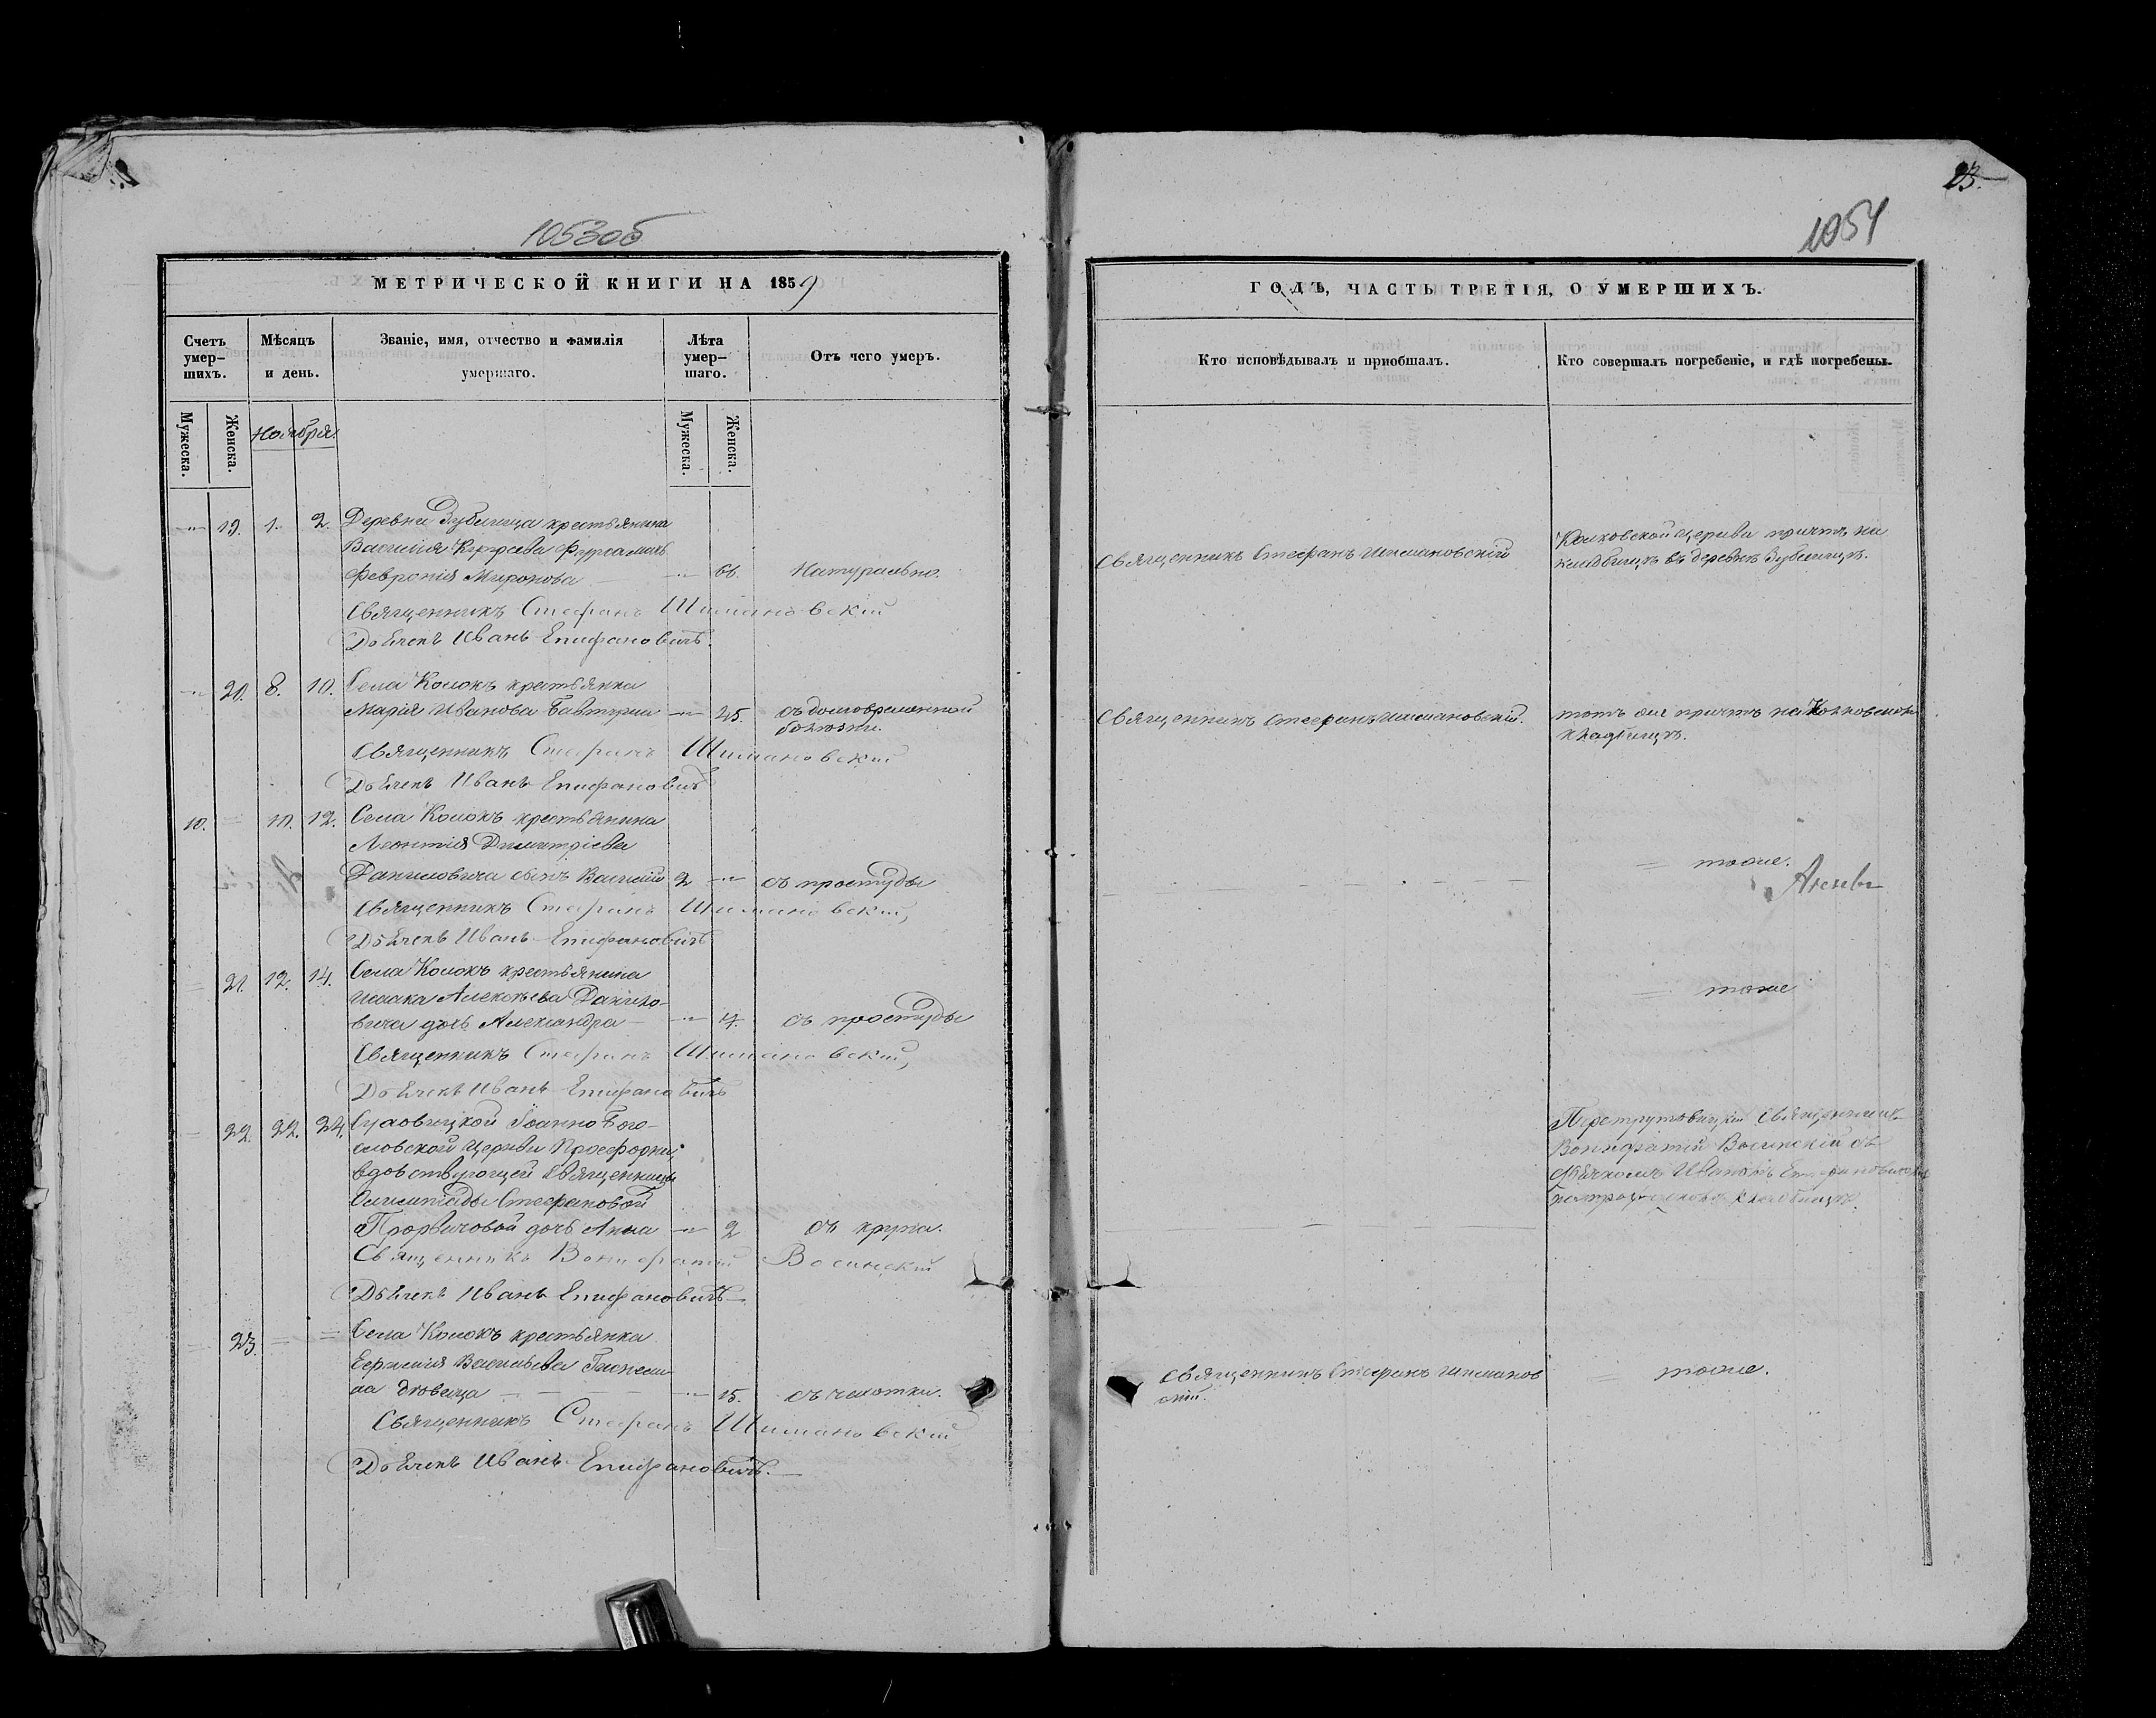 1053об
МЕТРИЧЕСКОЙ КНИГИ НА 1859
Счетъ умер-шихъ.
Мѣсяцъ и день.
Званіе, имя, отчество и фамилія умершаго.
Лѣта умер-шаго.
Отъ чего умеръ.
Мужеска.
Женска.
Ноября.
Мужеска.
Женска.
19. 1. 2. Деревни Зубилица крестьянина
Василія
Февронія Миронова 66. Натурально.
Священникъ Стефанъ Шимановскій
Дьячекъ Иванъ Епифановичъ.
20. 8. 10. Села Колокъ крестьянка
Марія Иванова 25. отъ долговременной
болѣзни.
Священникъ Стефанъ Шимановскій
Дьячекъ Иванъ Епифановичъ
10. 10. 12. Села Колокъ крестьянина
Леонтія Димитріева
Даниловича сынъ Василій 2 отъ простуды
Священникъ Стефанъ Шимановскій,
Дьячекъ Иванъ Епифановичъ
21. 12. 14. Села Колокъ крестьянина
Исаака Алексѣева Данило-
вича дочь Александра отъ простуды
Священникъ Стефанъ Шимановскій,
Дьячекъ Иванъ Епифановичъ
22. 22. 24. Іоанно Бого-
словской Церкви Просфорни
вдовствующей Священницы
Олимпіады Стефановой
дочь Анна 2 отъ крупа.
Священникъ Вонифатій
Дьячекъ Иванъ Епифановичъ
23. Села Колокъ крестьянка
Евфимія Васильева
дѣвица 15. отъ чахотки.
Священникъ Стефанъ Шимановскій
Дьячекъ Иванъ Епифановичъ.
23.
1054
ГОДЪ, ЧАСТЬ ТРЕТІЯ, О УМЕРШИХЪ.
Кто исповѣдывалъ и пріобщалъ.
Кто совершалъ погребеніе, и гдѣ погребены.
Священникъ Стефанъ Шимановскій
Колковской Церкви причтъ на
кладбищѣ въ деревнѣ Зубилицѣ.
Священникъ Стефанъ Шимановскій.
тотъ же причтъ на Колковскомъ
кладбищѣ.
тоже.
тоже
Священникъ
Вонифатій съ
дьячкомъ Иваномъ Епифановичемъ
кладбищѣ.
Священникъ Стефанъ Шиманов
скій.
тоже.